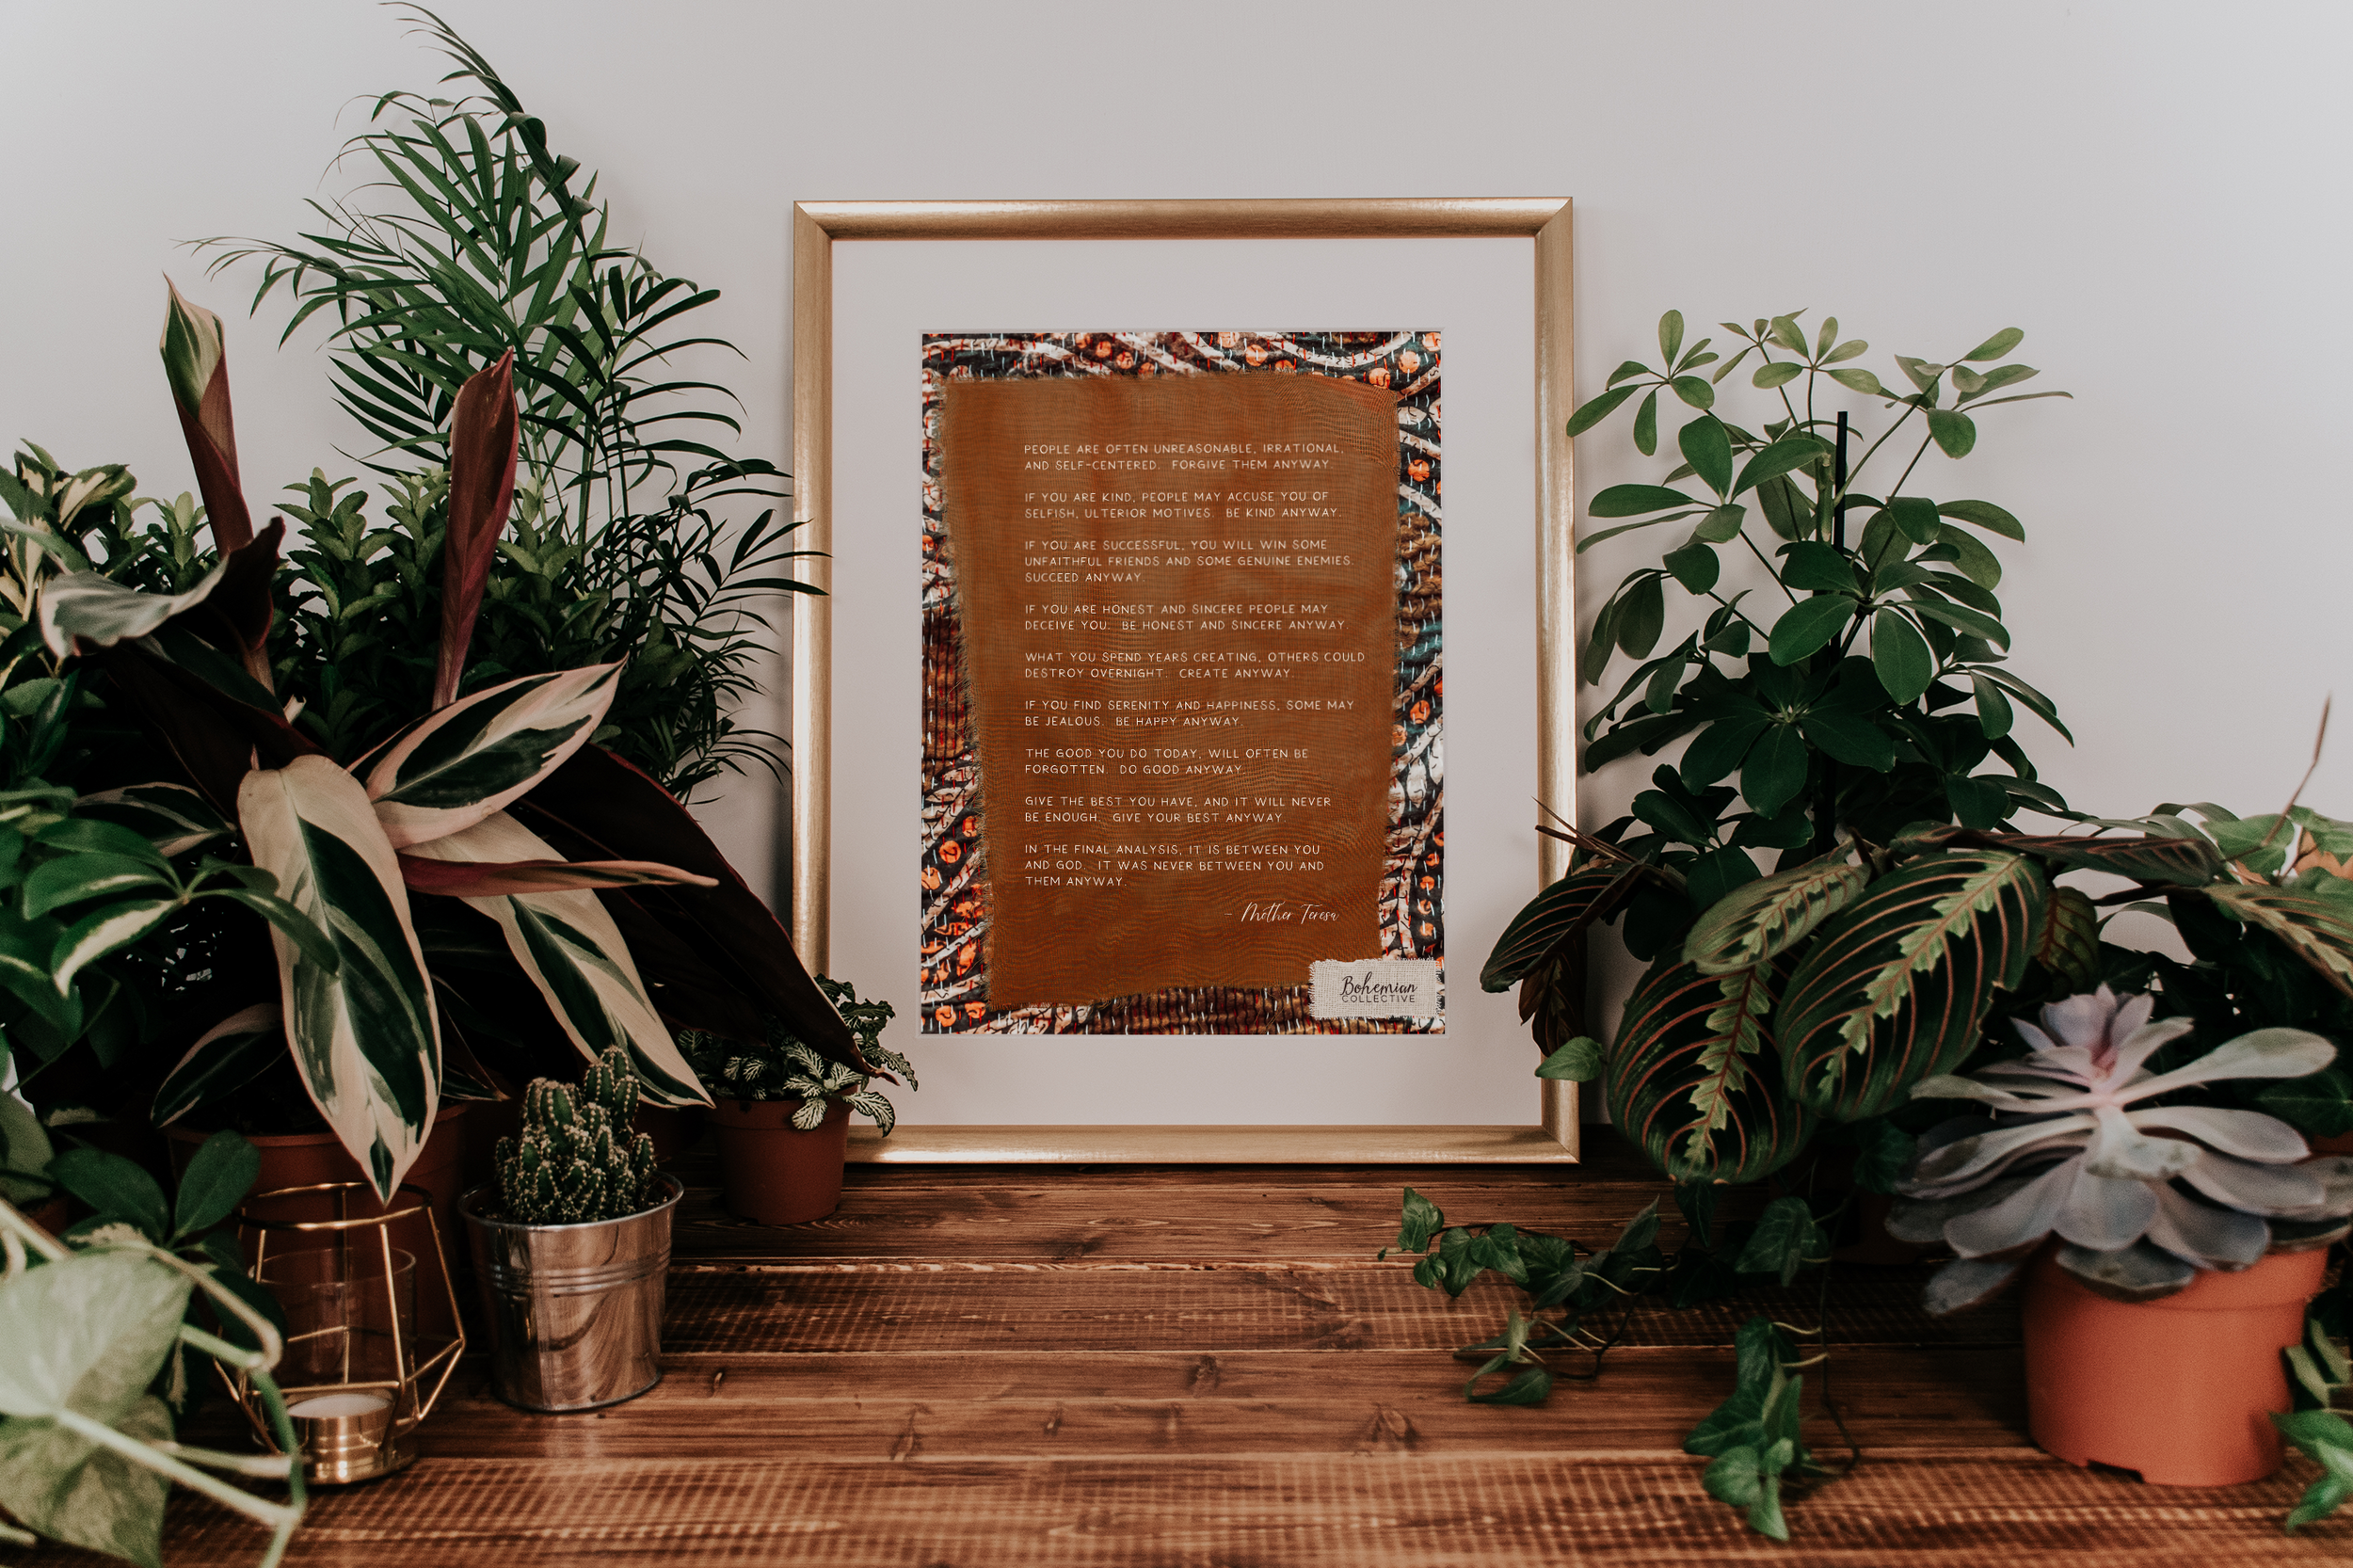 PEOPLE ARE OFTEN UNREASONABLE, IRRATIONAL,
AND SELF-CENTERED. FORGIVE THEM ANYWAY.
IF YOU ARE KIND, PEOPLE MAY ACCUSE YOU OF
SELFISH, ULTERIOR MOTIVES. BE KIND ANYWAY.
IF YOU ARE SUCCESSFUL, YOU WILL WIN SOME
UNFAITHFUL FRIENDS AND SOME GENUINE ENEMIES.
SUCCEED ANYWAY.
IF YOU ARE HONEST AND SINCERE PEOPLE MAY
DECEIVE YOU. BE HONEST AND SINCERE ANYWAY.
WHAT YOU SPEND YEARS CREATING, OTHERS COULD
DESTROY OVERNIGHT. CREATE ANYWAY.
IF YOU FIND SERENITY AND HAPPINESS, SOME MAY
BE JEALOUS. BE HAPPY ANYWAY.
THE GOOD YOU DO TODAY, WILL OFTEN BE
FORGOTTEN. DO GOOD ANYWAY.
GIVE THE BEST YOU HAVE, AND IT WILL NEVER
BE ENOUGH. GIVE YOUR BEST ANYWAY.
IN THE FINAL ANALYSIS, IT IS BETWEEN YOU
AND GOD. IT WAS NEVER BETWEEN YOU AND
THEM ANYWAY.
- Mother Teresa
Bohemian
COLLECTIVE